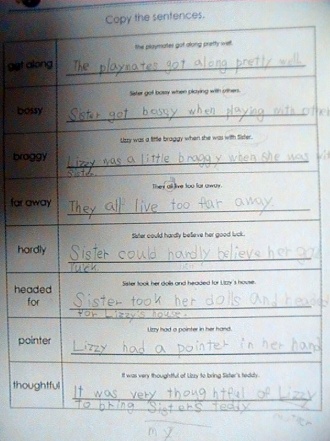 Copy the sentences.
get along
The playmates got along pretty well.
The playmates got along pretty well.
bossy
Sister got bossy when playing with others.
Sister got bossy when playing with other
braggy
Lizzy was a little braggy when she was with Sister.
Lizzy was a little braggy when she was wit
Sister.
far away
They all live too far away.
They all live too far away.
hardly
Sister could hardly believe her good luck.
Sister could hardly believe her goo
luck
headed for
Sister took her dolls and headed for Lizzy's house.
Sister took her dolls and headed
for Lizzy's house.
pointer
Lizzy had a pointer in her hand.
Lizzy had a pointer in her hand
thoughtful
It was very thoughtful of Lizzy to bring Sister's teddy.
It was very thoughtful of Lizzy
to bring Sister's teddy
my